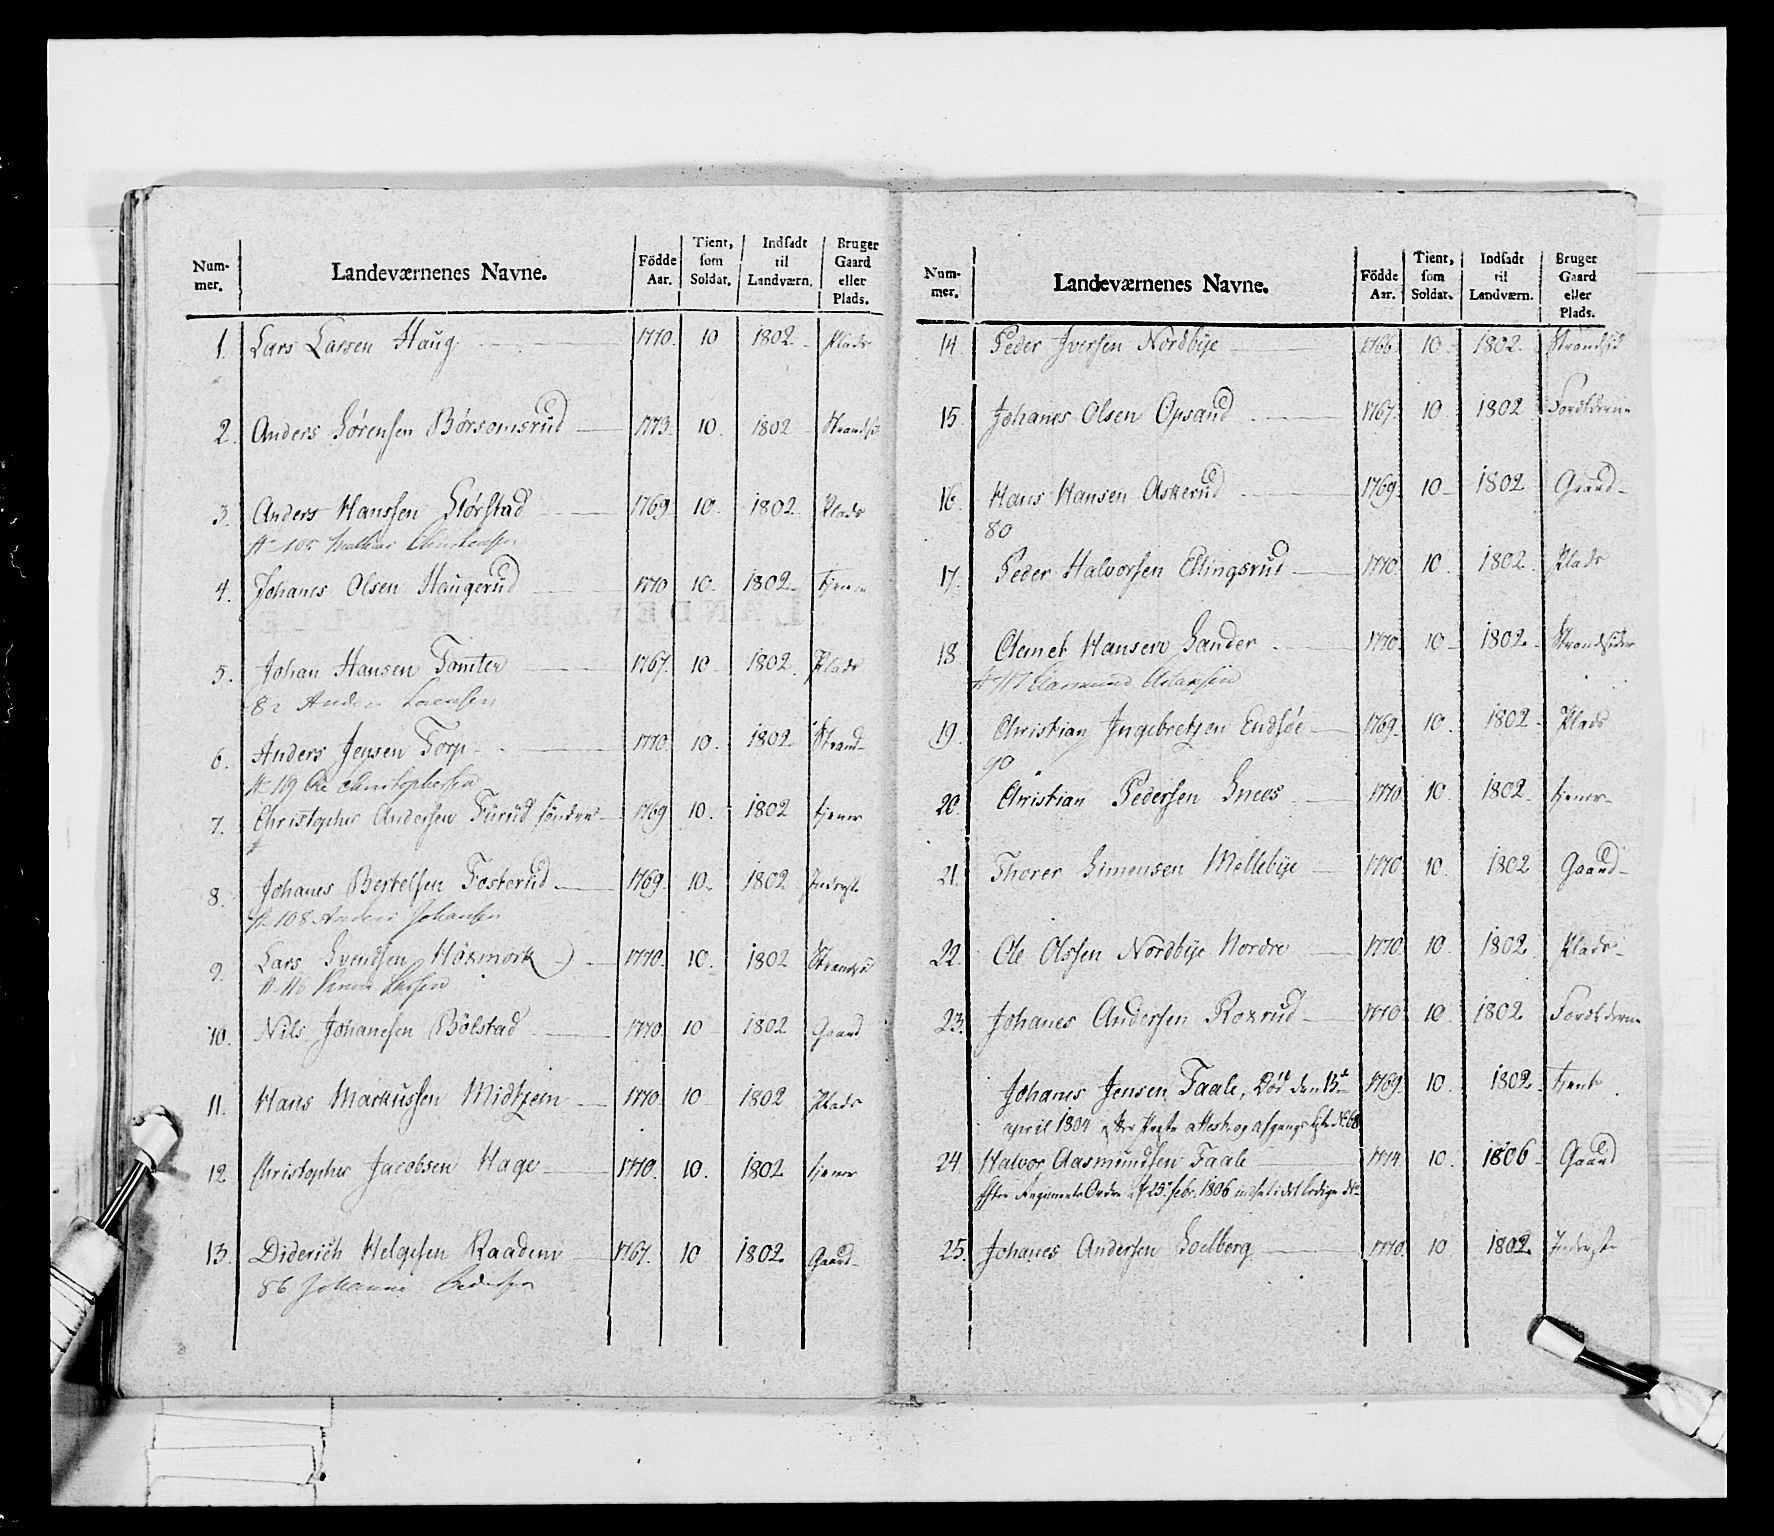 Num-mer. Landeværnenes Navne. Födde Aar. Tient, som Soldat. Indsadt til Landværn. Bruger Gaard eller Plads.
1. Lars Larsen Haug 1770. 10 1802 Plads
2. Anders Sørensen Børsomsrud 1773. 10. 1802 Strandsid
3. Anders Hanssen Störstad 1769 10. 1802. Plads
105
4. Johanes Olsen Haugerud 1770 10. 1802. tjener
5. Johan Hansen Tomter 1767. 10 1802. Plads
82 Anders Larensen
6. Anders Jensen Torp 1770. 10. 1802. Strand-
119 Ole Christophersen
7. Christopher Andersen Fürüd søndre 1769 10. 1802 tjener
8. Johanes Bertelsen Fosterud 1769. 10. 1802 Inderst
108 Anders Johansen
9. Lars Svendsen Haxmork 1770. 10. 1802 Strandsid
116
10. Nils Johanesen Bölstad 1770. 10 1802 Gaard
11. Hans Markussen Midtzem 1770 10 1802 Plads
12 Christopher Jacobsen Hage 1770. 10. 1802 tjener
13. Diderich Helgesen Raadem 1767. 10 1802. Gaard
86 Johannes Pedersen
Num-mer. Landeværnenes Navne. Födde Aar. Tient, som Soldat. Indsadt til Landværn. Bruger Gaard eller Plads.
14 Peder Iversen Nordbÿe 1766. 10 1802. Strandsid
15. Johanes Olsen Opsand 1767. 10 1802 Forældrene
16. Hans Hansen Askerud 1769. 10 1802 Gaard
80
17. Peder Halvorsen Ellingsrud 1770. 10. 1802. Plads
18 Clemet Hansen Sander 1770. 10 1802. Strandsider
117
19. Christian Ingebretsen Endsöe 1769. 10. 1802 Plads
90
20. Christian Pedersen Snees 1770 10 1802 tjener
21. Thorer Simensen Mellebÿe 1770. 10. 1802 Gaard
22. Ole Olssen Nordbÿe Nordre 1770 10 1802. Plads
23. Johanes Andersen Roxrud 1770 10 1802 Forældrene
Johanes Jensen Faale, Död den 15de 1769. 10. 1802. tjent
april 1804 Attest og afgangs Liste No 68
24 Halvor Aasmundsen Faale 1774 10. 1806 Gaard
Efter Regiments Ordre af 25 febr. 1806 indsat i det ledige No
25. Johanes Andersen Soelberg 1770. 10 1802. Inderste